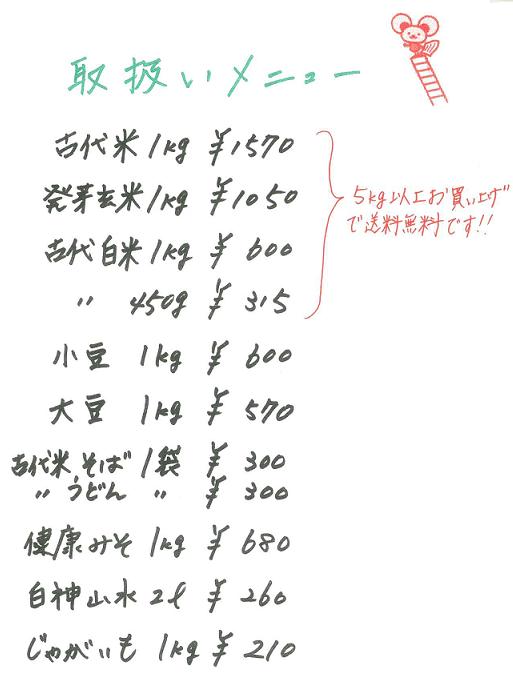 取扱いメニュー
古代米 1kg ¥1570
発芽玄米 1kg ¥1050
古代白米 1kg ¥600
〃 450g ¥315
5kg以上お買い上げ
で送料無料です!!
小豆 1kg ¥600
大豆 1kg ¥570
古代米そば 1袋 ¥300
〃 うどん 〃 ¥300
健康みそ 1kg ¥680
白神山水 2ℓ ¥260
じゃがいも 1kg ¥210